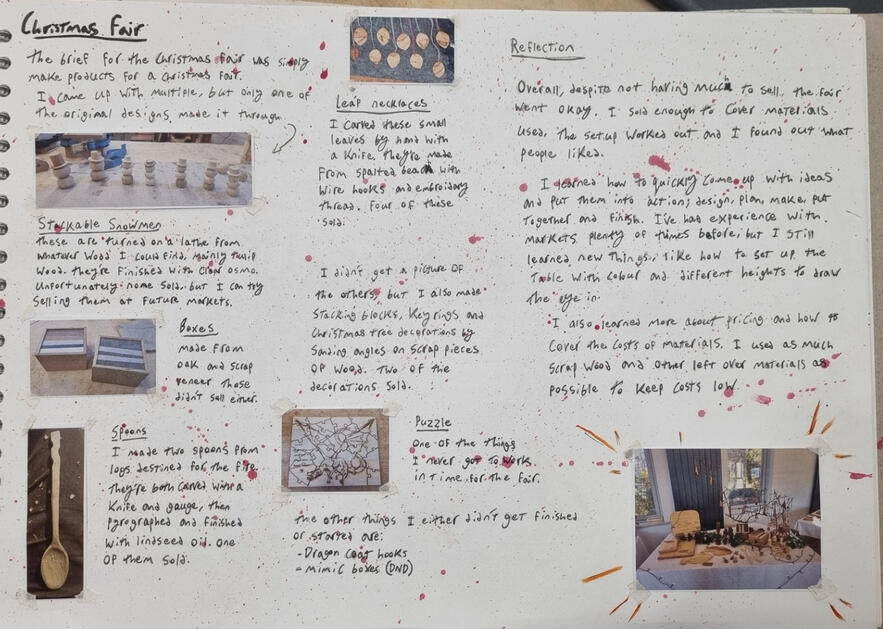 Christmas Fair
the brief for the Christmas fair was simply
make products for a Christmas Fair.
I came up with multiple, but only one of
the original designs, made it through.
Stackable Snowmen
these are turned on a lathe from
whatever wood I could find, mainly tulip
wood. they're finished with clear osmo.
Unfortunately none sold, but I can try
selling them at future markets.
Boxes
made from
oak and scrap
veneer these
didn't sell either.
Spoons
I made two spoons from
logs destined for the fire.
They're both carved with a
knife and gauge, then
pyrographed and finished
with lindseed oil. One
of them sold.
Leaf necklaces
I carved these small
leaves by hand with
a knife. they're made
from spalted beach with
wire hooks and embroidary
thread. Four of these
sold.
I didn't get a picture of
the others, but I also made
stacking blocks, Keyrings and
Christmas tree decorations by
Sanding angles on scrap pieces
of wood. Two of the
decorations sold.
Puzzle
One of the things
I never got to work
in time for the fair.
the other things I either didn't get finished
or started are:
- Dragon coat hooks
- mimic boxes (DND)
Reflection
Overall, despite not having much to sell, the fair
went okay. I sold enough to cover materials
used, the setup worked out and I found out what
people liked.
I learned how to quickly come up with ideas
and put them into action; design, plan, make, put
together and finish. I've had experience with
markets plenty of times before, but I still
learned new things, like how to set up the
table with colour and different heights to draw
the eye in.
I also learned more about pricing and how to
cover the costs of materials. I used as much
scrap wood and other left over materials as
possible to keep costs low.